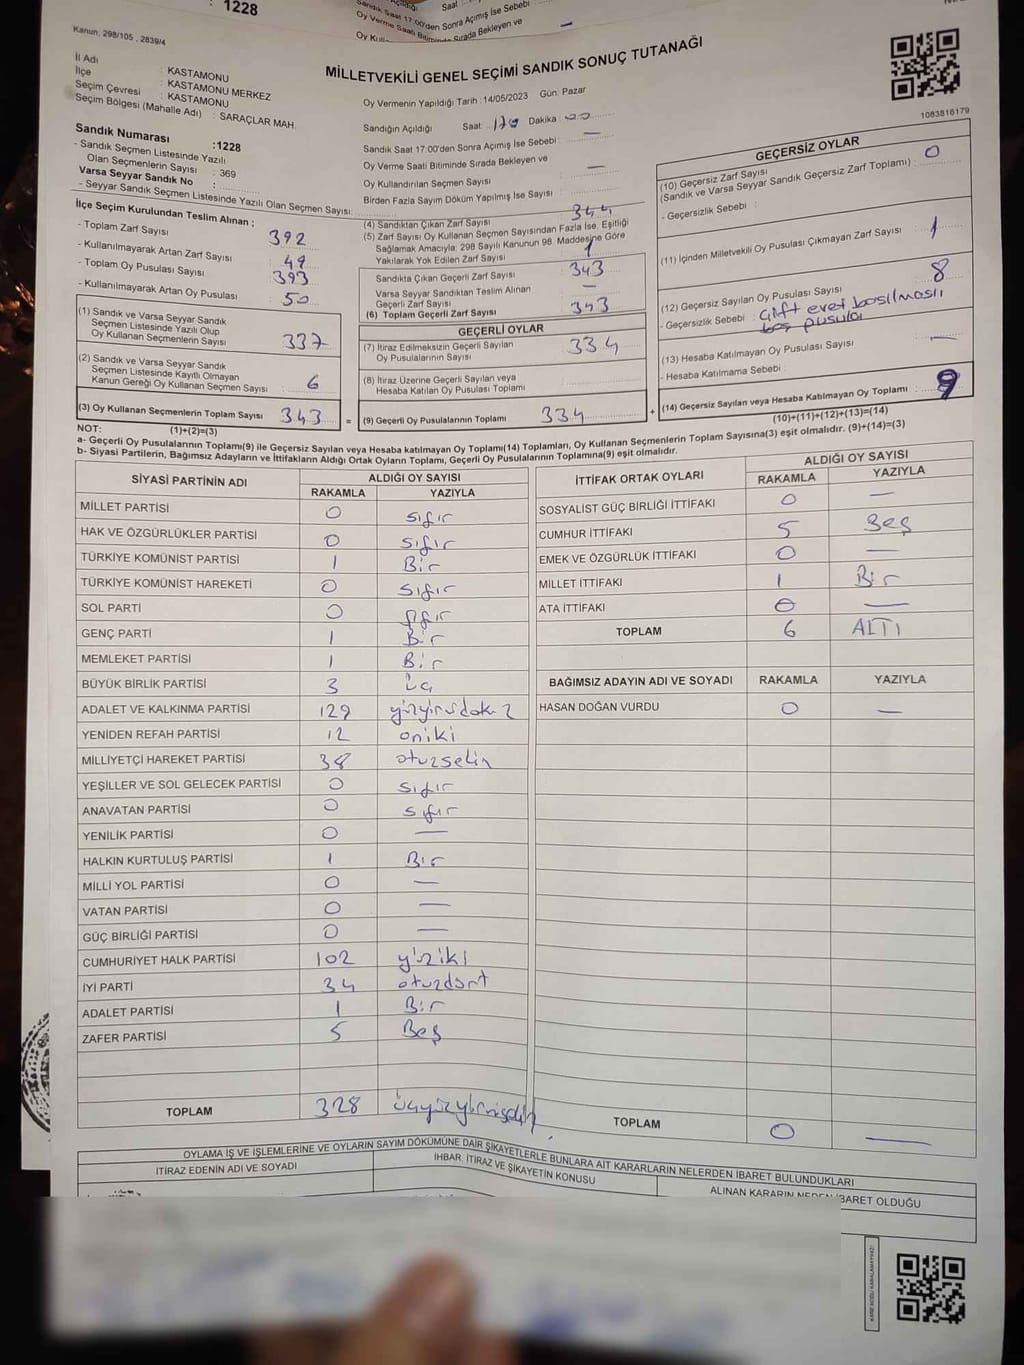 : 1228
Sandık Saat 17.00'den Sonra Açımış İse Sebebi
Oy Verme Saati Bitiminde Sırada Bekleyen ve
Kanun, 298/105 , 2839/4
MİLLETVEKİLİ GENEL SEÇİMİ SANDIK SONUÇ TUTANAĞI
İl Adı : KASTAMONU
İlçe : KASTAMONU MERKEZ
Seçim Çevresi : KASTAMONU
Seçim Bölgesi (Mahalle Adı) : SARAÇLAR MAH.
Oy Vermenin Yapıldığı Tarih :14/05/2023 Gün: Pazar
Sandığın Açıldığı Saat Dakika :
Sandık Saat 17.00'den Sonra Açımış İse Sebebi : —
Oy Verme Saati Bitiminde Sırada Bekleyen ve
Oy Kullandırılan Seçmen Sayısı : —
Birden Fazla Sayım Döküm Yapılmış İse Sayısı
1083816179
Sandık Numarası :1228
- Sandık Seçmen Listesinde Yazılı
Olan Seçmenlerin Sayısı : 369
Varsa Seyyar Sandık No :
- Seyyar Sandık Seçmen Listesinde Yazılı Olan Seçmen Sayısı:
İlçe Seçim Kurulundan Teslim Alınan ;
- Toplam Zarf Sayısı 392
- Kullanılmayarak Artan Zarf Sayısı 49
- Toplam Oy Pusulası Sayısı 393
- Kullanılmayarak Artan Oy Pusulası 50
(1) Sandık ve Varsa Seyyar Sandık
Seçmen Listesinde Yazılı Olup
Oy Kullanan Seçmenlerin Sayısı 337
(2) Sandık ve Varsa Seyyar Sandık
Seçmen Listesinde Kayıtlı Olmayan
Kanun Gereği Oy Kullanan Seçmen Sayısı 6
(3) Oy Kullanan Seçmenlerin Toplam Sayısı 343
(1)+(2)=(3)
(4) Sandıktan Çıkan Zarf Sayısı 344
(5) Zarf Sayısı Oy Kullanan Seçmen Sayısından Fazla İse, Eşitliği
Sağlamak Amacıyla; 298 Sayılı Kanunun 98. Maddesine Göre
Yakılarak Yok Edilen Zarf Sayısı 1
Sandıkta Çıkan Geçerli Zarf Sayısı 343
Varsa Seyyar Sandıktan Teslim Alınan
Geçerli Zarf Sayısı —
(6) Toplam Geçerli Zarf Sayısı 343
GEÇERLİ OYLAR
(7) İtiraz Edilmeksizin Geçerli Sayılan
Oy Pusulalarının Sayısı 334
(8) İtiraz Üzerine Geçerli Sayılan veya
Hesaba Katılan Oy Pusulası Toplamı
= (9) Geçerli Oy Pusulalarının Toplamı 334 +
GEÇERSİZ OYLAR
(10) Geçersiz Zarf Sayısı
(Sandık ve Varsa Seyyar Sandık Geçersiz Zarf Toplamı) : 0
- Geçersizlik Sebebi :
(11) İçinden Milletvekili Oy Pusulası Çıkmayan Zarf Sayısı 1
(12) Geçersiz Sayılan Oy Pusulası Sayısı 8
- Geçersizlik Sebebi : Çift evet basılması
boş pusula
(13) Hesaba Katılmayan Oy Pusulası Sayısı —
- Hesaba Katılmama Sebebi :
(14) Geçersiz Sayılan veya Hesaba Katılmayan Oy Toplamı : 9
(10)+(11)+(12)+(13)=(14)
NOT:
a- Geçerli Oy Pusulalarının Toplamı(9) ile Geçersiz Sayılan veya Hesaba katılmayan Oy Toplamı(14) Toplamları, Oy Kullanan Seçmenlerin Toplam Sayısına(3) eşit olmalıdır. (9)+(14)=(3)
b- Siyasi Partilerin, Bağımsız Adayların ve İttifakların Aldığı Ortak Oyların Toplamı, Geçerli Oy Pusulalarının Toplamına(9) eşit olmalıdır.
SİYASİ PARTİNİN ADI ALDIĞI OY SAYISI
RAKAMLA YAZIYLA
MİLLET PARTİSİ 0 sıfır
HAK VE ÖZGÜRLÜKLER PARTİSİ 0 sıfır
TÜRKİYE KOMÜNİST PARTİSİ 1 Bir
TÜRKİYE KOMÜNİST HAREKETİ 0 sıfır
SOL PARTİ 0 sıfır
GENÇ PARTİ 1 Bir
MEMLEKET PARTİSİ 1 Bir
BÜYÜK BİRLİK PARTİSİ 3 üç
ADALET VE KALKINMA PARTİSİ 129 yüzyirmidokuz
YENİDEN REFAH PARTİSİ 12 oniki
MİLLİYETÇİ HAREKET PARTİSİ 38 otuzsekiz
YEŞİLLER VE SOL GELECEK PARTİSİ 0 sıfır
ANAVATAN PARTİSİ 0 sıfır
YENİLİK PARTİSİ 0 —
HALKIN KURTULUŞ PARTİSİ 1 Bir
MİLLİ YOL PARTİSİ 0 —
VATAN PARTİSİ 0 —
GÜÇ BİRLİĞİ PARTİSİ 0 —
CUMHURİYET HALK PARTİSİ 102 yüziki
İYİ PARTİ 34 otuzdört
ADALET PARTİSİ 1 Bir
ZAFER PARTİSİ 5 Beş
TOPLAM 328 üçyüzyirmisekiz
İTTİFAK ORTAK OYLARI ALDIĞI OY SAYISI
RAKAMLA YAZIYLA
SOSYALİST GÜÇ BİRLİĞİ İTTİFAKI 0 —
CUMHUR İTTİFAKI 5 Beş
EMEK VE ÖZGÜRLÜK İTTİFAKI 0 —
MİLLET İTTİFAKI 1 Bir
ATA İTTİFAKI 0 —
TOPLAM 6 ALTI
BAĞIMSIZ ADAYIN ADI VE SOYADI RAKAMLA YAZIYLA
HASAN DOĞAN VURDU 0 —
TOPLAM 0 —
OYLAMA İŞ VE İŞLEMLERİNE VE OYLARIN SAYIM DÖKÜMÜNE DAİR ŞİKAYETLERLE BUNLARA AİT KARARLARIN NELERDEN İBARET BULUNDUKLARI
İTİRAZ EDENİN ADI VE SOYADI
İHBAR, İTİRAZ VE ŞİKAYETİN KONUSU
ALINAN KARARIN NEDEN İBARET OLDUĞU